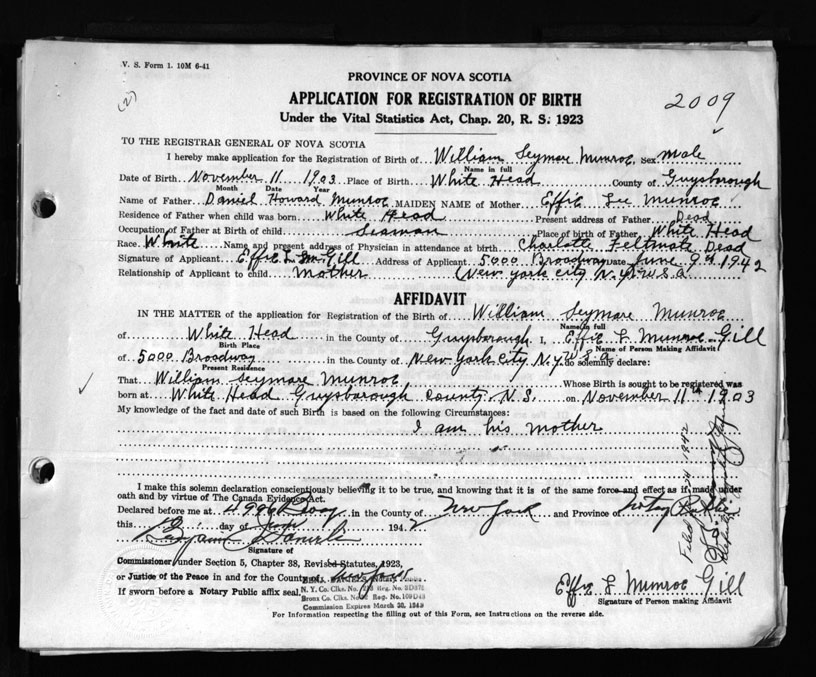 V. S. Form 1. 10M 6-41
(2)
PROVINCE OF NOVA SCOTIA
APPLICATION FOR REGISTRATION OF BIRTH
2009
Under the Vital Statistics Act, Chap. 20, R. S. 1923
TO THE REGISTRAR GENERAL OF NOVA SCOTIA
I hereby make application for the Registration of Birth of William Seymore Munroe, Sex male
Name in full
Date of Birth November 11 1903 Place of Birth White Head County of Guysborough
Month Date Year
Name of Father Daniel Howard Munroe MAIDEN NAME of Mother Effie Lee Munroe
Residence of Father when child was born White Head Present address of Father Dead
Occupation of Father at Birth of child Seaman Place of birth of Father White Head
Race White Name and present address of Physician in attendance at birth Charlotte Feltmate Dead
Signature of Applicant Effie L Gill Address of Applicant 5000 Broadway Date June 9th 1942
Relationship of Applicant to child mother (New York City N.Y. U.S.A
AFFIDAVIT
IN THE MATTER of the application for Registration of the Birth of William Seymore Munroe
Name in full
of White Head in the County of Guysborough I, Effie L Munroe Gill
Birth Place Name of Person Making Affidavit
of 5000 Broadway in the County of New York City N.Y. U.S.A do solemnly declare:
Present Residence
That William Seymore Munroe Whose Birth is sought to be registered was
born at White Head Guysborough County N.S. on November 11th 1903
My knowledge of the fact and date of such Birth is based on the following Circumstances:
I am his mother
I make this solemn declaration conscientiously believing it to be true, and knowing that it is of the same force and effect as if made under
oath and by virtue of The Canada Evidence Act.
Declared before me at 4996 Bway in the County of New York and Province of
this day of 1942
Signature of
Commissioner under Section 5, Chapter 38, Revised Statutes, 1923,
or Justice of the Peace in and for the County of New York
If sworn before a Notary Public affix seal.
N. Y. Co. Clks. No. Reg. No.
Bronx Co. Clks. No. Reg. No.
Commission Expires March 30, 1943
Filed 1942
Effie L Munroe Gill
Signature of Person making Affidavit
For Information respecting the filling out of this Form, see Instructions on the reverse side.